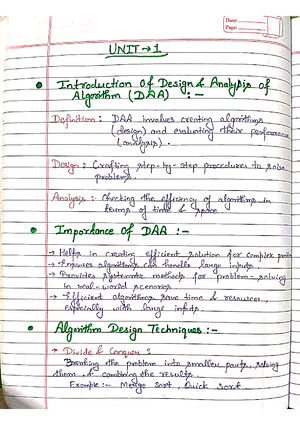 Date:
Page:
UNIT → 1
• Introduction Of Design & Analysis of
Algorithm (DAA) :-
Definition : DAA involves creating algorithms
(design) and evaluating their performance
(analysis).
Design : Crafting step-by-step procedures to solve
problems.
Analysis : Checking the efficiency of algorithms in
terms of time & space
• Importance Of DAA :-
→ Helps in creating efficient solution for complex
→ Ensures algorithms can handle large inputs.
→ Provides systematic methods for problem-solving
in real-world scenarios
→ Efficient algorithms save time & resources,
especially with large inputs.
• Algorithm Design Techniques :-
→ Divide & Conquer :
Breaking the problem into smaller parts, solving
them, & combining the results.
Example :- Merge Sort, Quick Sort